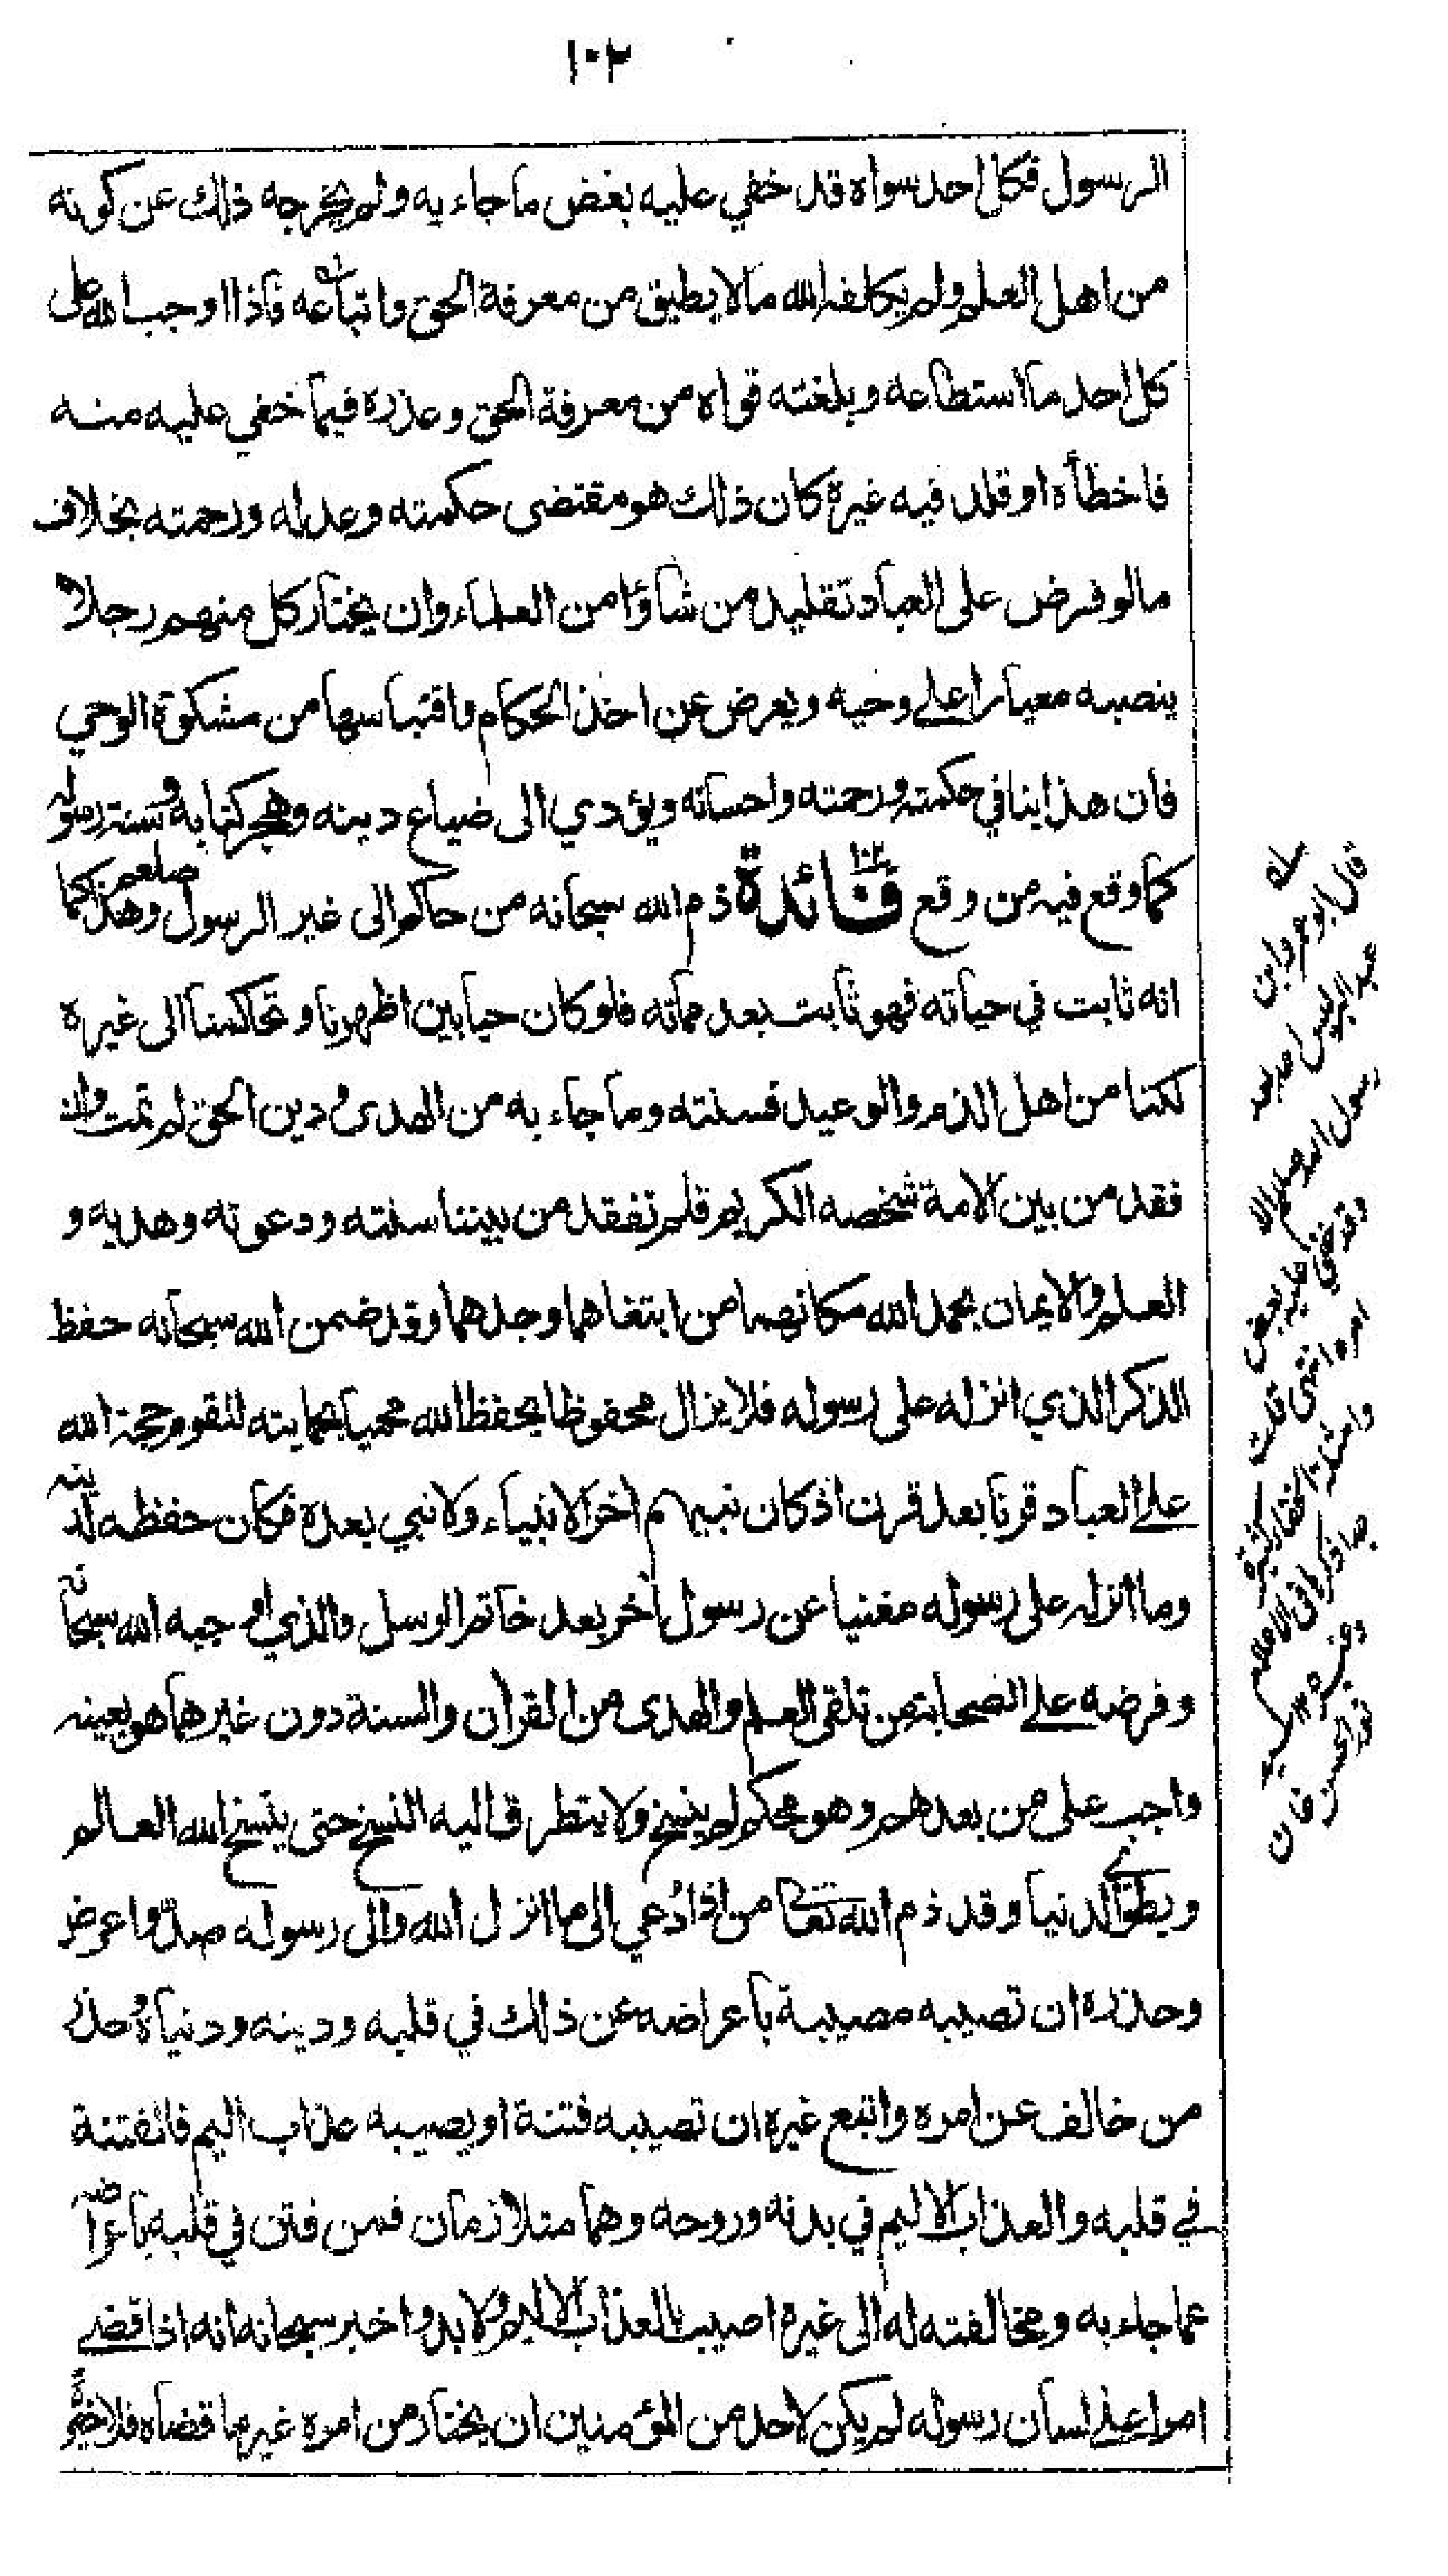 ١٠٢
الرسول فكل احد سواه قد خفي عليه بعض ما جاء به ولم يخرجه ذلك عن كونه
من اهل العلم ولم يكلفه الله ما لا يطيق من معرفة الحق واتباعه فاذا اوجب الله على
كل احد ما استطاعه وبلغته قواه من معرفة الحق وعذره فيما خفي عليه منه
فاخطأه او قلد فيه غيره كان ذلك هو مقتضى حكمته وعدله ورحمته بخلاف
مالو فرض على العباد تقليد من شاؤا من العلماء وان يختار كل منهم رجلا
ينصبه معيارا على وحيه ويعرض عن اخذ الحكام واقتباسها من مشكوة الوحي
فان هذا ينافي حكمته ورحمته واحسانه ويؤدي الى ضياع دينه وهجر كتابه وسنة رسوله
صلعم
كما وقع فيه من وقع فائدة ١٠٢ ذم الله سبحانه من حاكم الى غير الرسول وهذا كما
انه ثابت في حياته فهو ثابت بعد مماته فلو كان حيا بين اظهرنا وتحاكمنا الى غيره
لكنا من اهل الذم والوعيد فسنته وما جاء به من الهدى ودين الحق لم تمت وان
فقد من بين الامة شخصه الكريم فلم تفقد من بيننا سنته ودعوته وهديه و
العلم والايمان بحمد الله مكانهما من ابتغاهما وجدهما وقد ضمن الله سبحانه حفظ
الذكر الذي انزله على رسوله فلا يزال محفوظا بحفظ الله محميا بحمايته لتقوم حجة الله
على العباد قرنا بعد قرن اذ كان نبيهم اخر الانبياء ولا نبي بعده فكان حفظه لدينه
وما انزله على رسوله مغنيا عن رسول اخر بعد خاتم الرسل والذي اوجبه الله سبحانه
وفرضه على الصحابة من تلقى العلم والهدى من القرآن والسنة دون غيرهما هو بعينه
واجب على من بعدهم وهو محكم لم ينسخ ولا يتطرق اليه النسخ حتى ينسخ الله العالم
ويطوي الدنيا وقد ذم الله تعالى من اذا دُعي الى ما انزل الله والى رسوله صدّ واعرض
وحذره ان تصيبه مصيبة باعراضه عن ذلك في قلبه ودينه ودنياه وحذر
من خالف عن امره واتبع غيره ان تصيبه فتنة او يصيبه عذاب اليم فالفتنة
في قلبه والعذاب الاليم في بدنه وروحه وهما متلازمان فمن فتن في قلبه باعراضه
عما جاء به ومخالفته له الى غيره اصيب بالعذاب الاليم ولا بد واخبر سبحانه انه اذا قضى
امرا على لسان رسوله لم يكن لاحد من المؤمنين ان يختار من امره غير ما قضاه فلا خيرة
قال ابو عمر وابن
عبد البر ليس احد بعد
رسول الله صلعم الا
وقد خفي عليه بعض
امره انتهى قلت